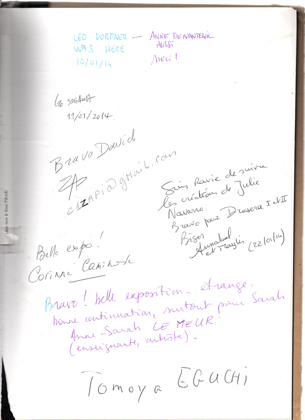 LEO DORFNER — ANNE DE NANTERRE
WAS HERE AUSSI
10/01/14 MERCI !
11/01/2014.
Bravo David
@gmail.com
Suis Ravie de suivre
les créations de Julie
Navarro.
Bravo pour Drosera I et II
Bises
Annabel
et
(22/01/14)
Belle expo !
Corinne
Bravo ! belle exposition - étrange.
bonne continuation, surtout pour Sarah
Anne-Sarah LE MEUR
(enseignante, artiste).
Tomoya EGUCHI